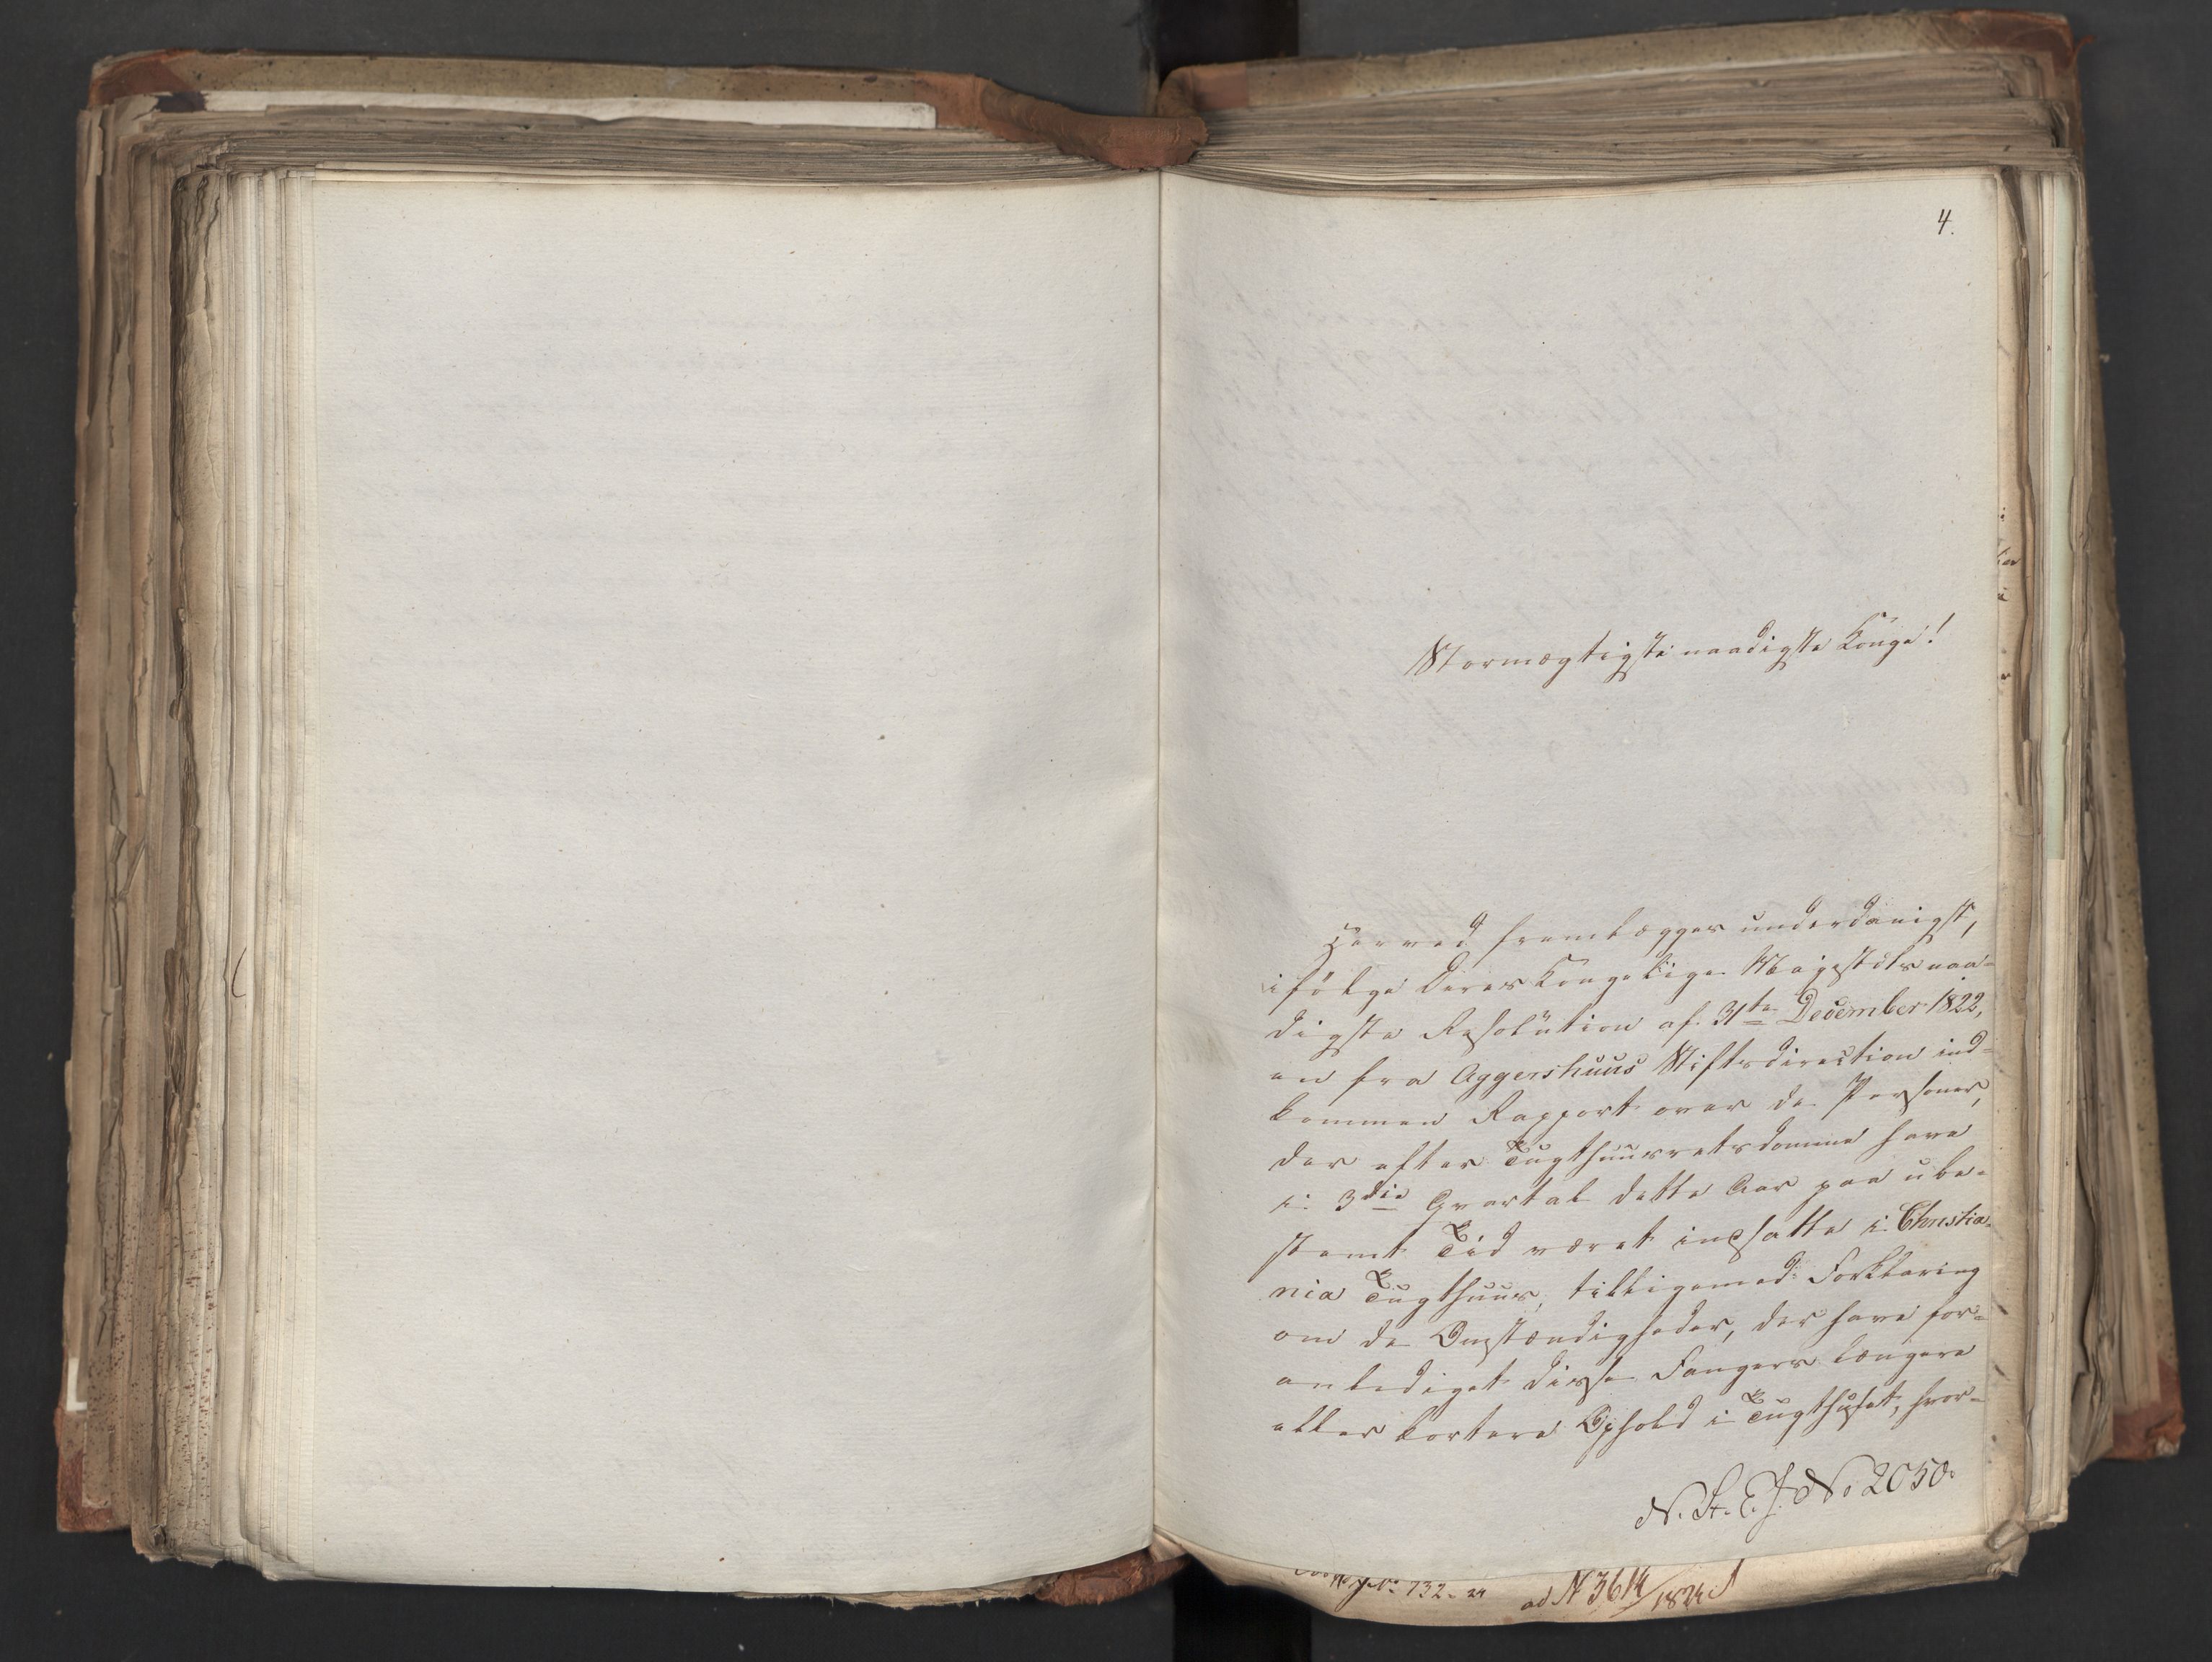 4.
Stormægtigste naadigste Konge!
Herved fremlægges underdanigst,
ifölge Deres Kongelige Majestæts naa-
digste Resolution af 31te December 1822,
en fra Aggershuus Stiftsdirection ind-
kommen Rapport over de Personer,
der efter Tugthuusretsdomme have
i 3die Qvartal dette Aar paa ube-
stemt Tid været indsatte i Christia-
nia Tugthuus, tilligemed Forklaring
om de Omstændigheder, der have for-
anlediget disse Fangers længere
eller kortere Ophold i Tugthuset, hvor-
N. St. E. J. No 2050.
732. 24 ad N 3614/1824